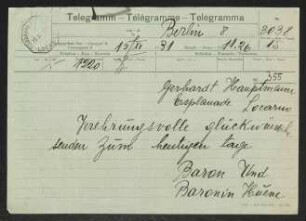 Telegramm – Télégramme – Telegramma
Berlin 8 3031
15/XI 31 11.20 15
1920
355
Gerhardt Hauptmann
Esplanade Locarno
Verehrungsvolle Glückwünsche
senden zum heutigen tage
Baron Und
Baronin Huene